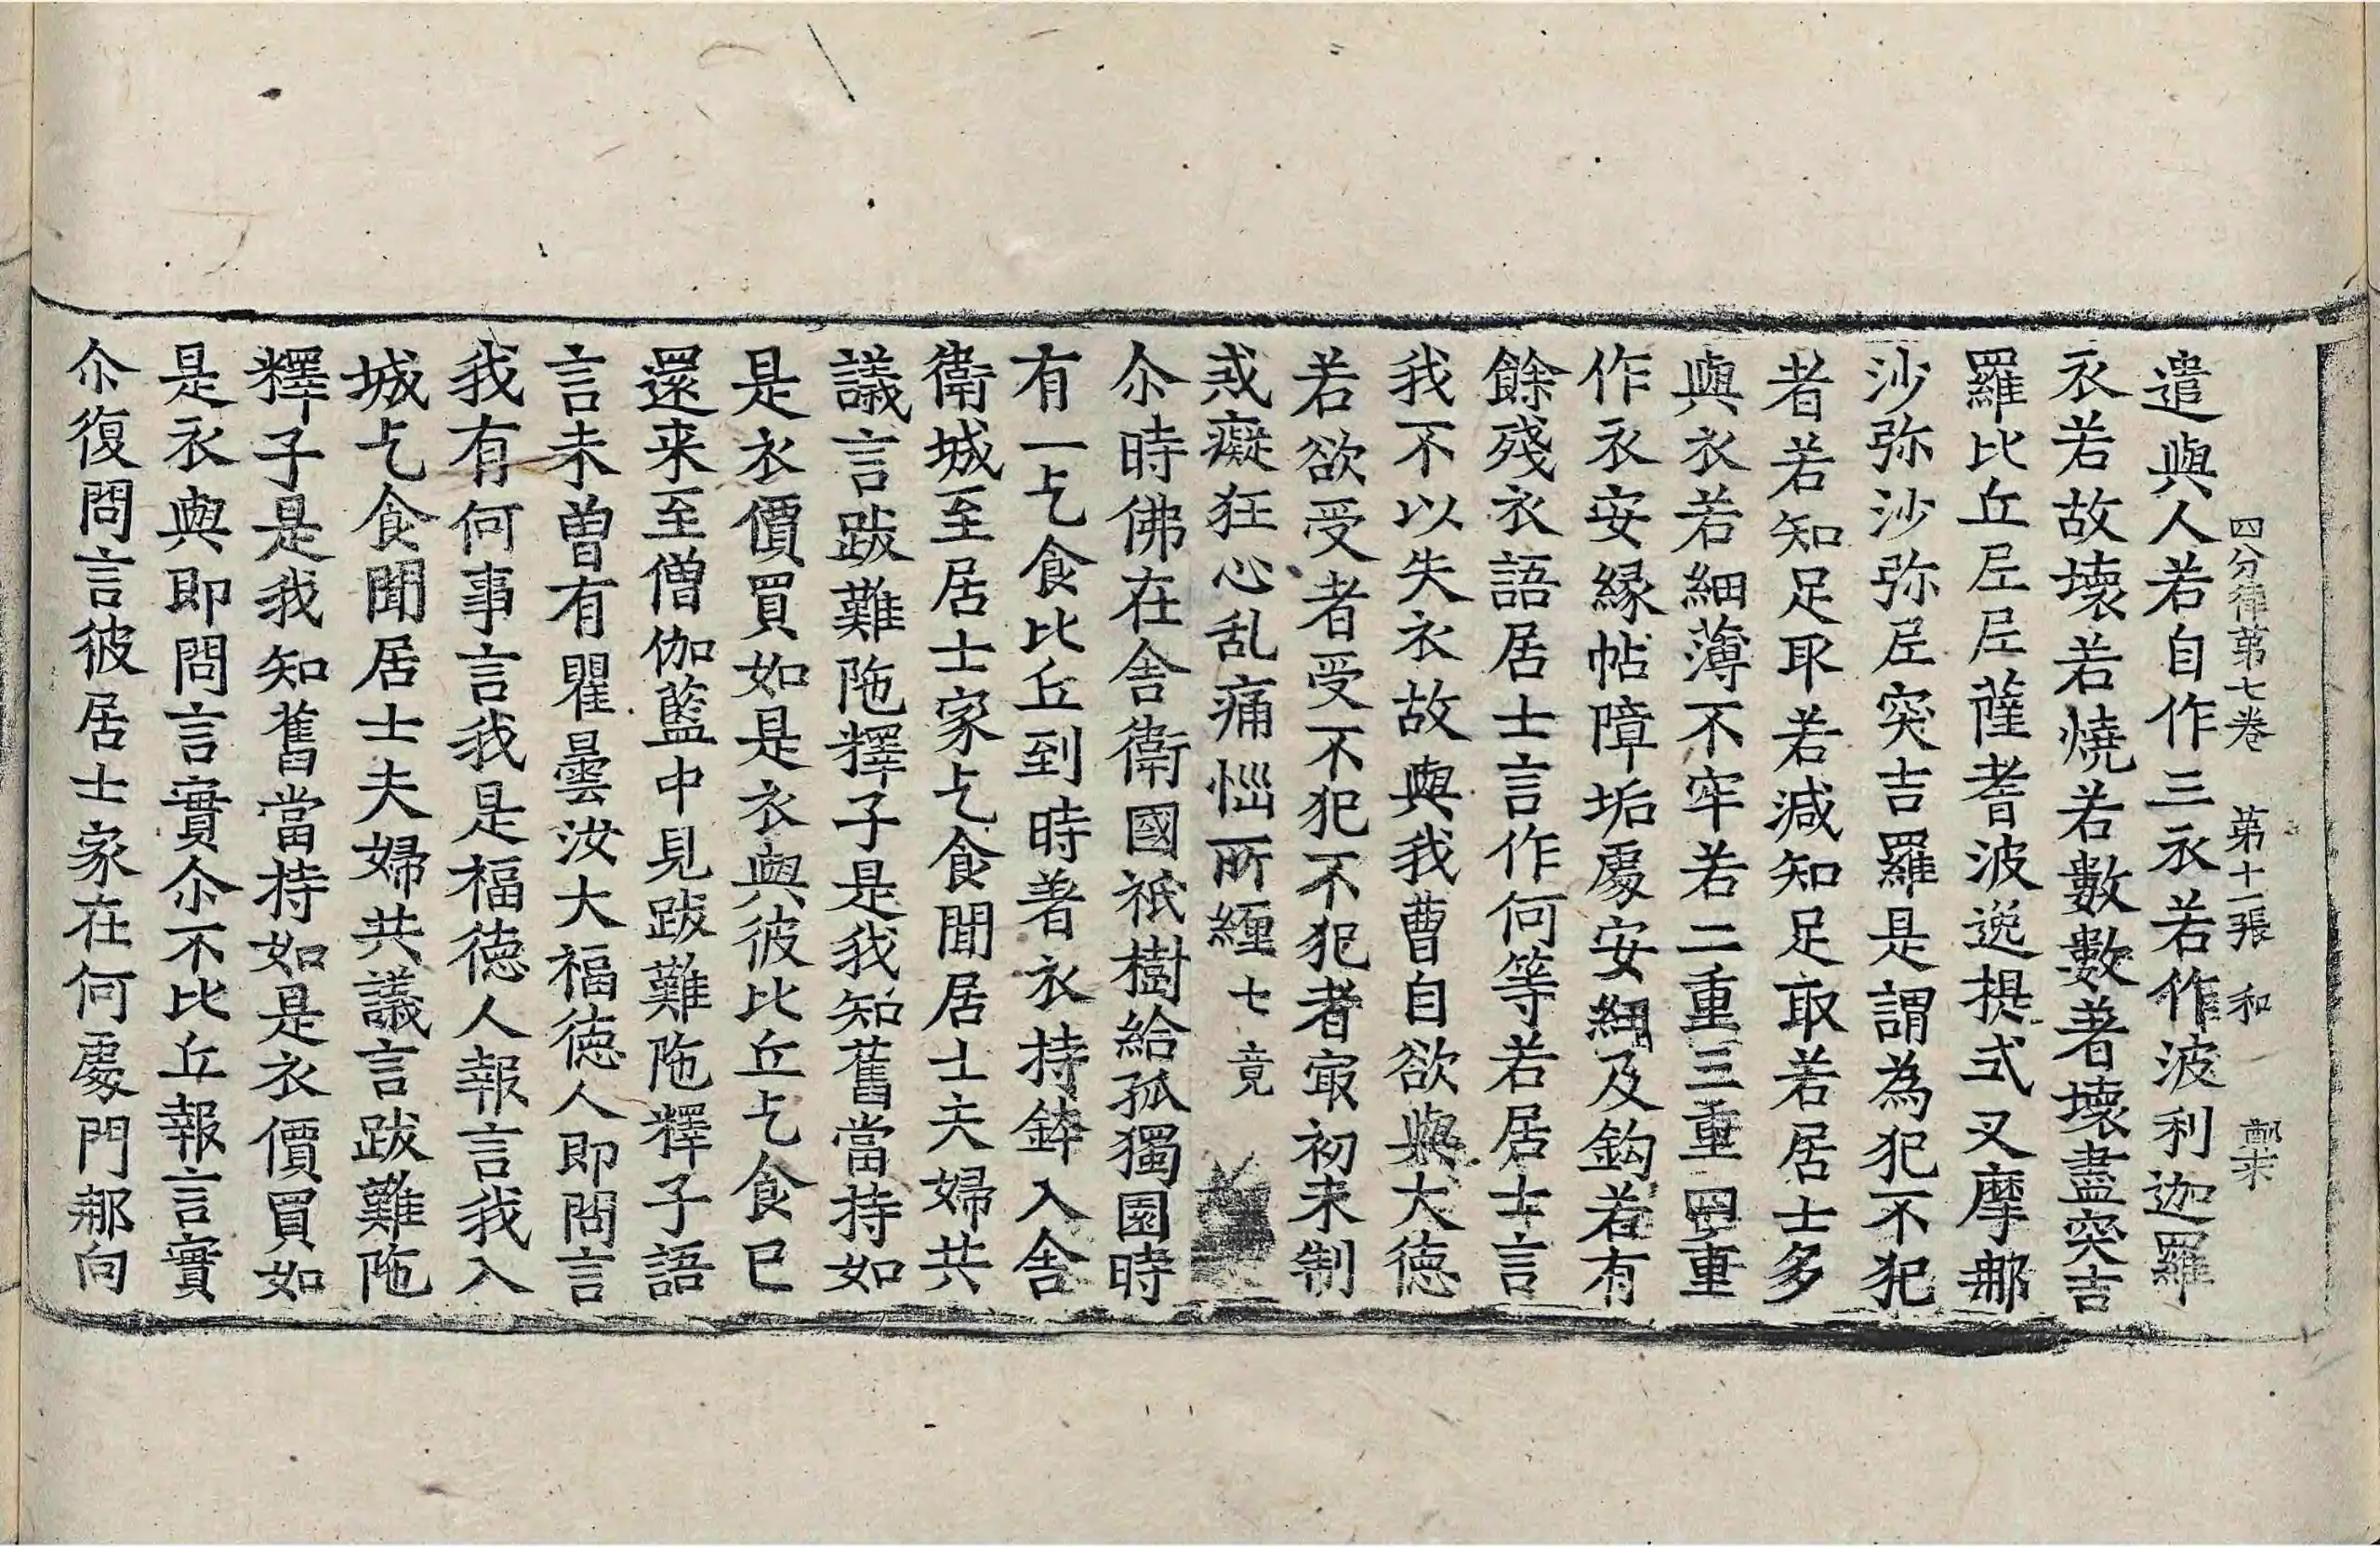 四分律第七卷 第十二張 和 鄭宋
遣與人若自作三衣若作波利迦羅
衣若故壞若燒若數數著壞盡突吉
羅比丘𡰱𡰱薩耆波逸提式叉摩那
沙弥沙弥𡰱突吉羅是謂為犯不犯
者若知足取若減知足取若居士多
與衣若細薄不牢若二重三重四重
作衣安緣帖障垢處安細及鈎若有
餘殘衣語居士言作何等若居士言
我不以失衣故與我曹自欲與大德
若欲受者受不犯不犯者㝡初未制
戒癡狂心乱痛惱所纏 七竟
尒時佛在舍衛國祇樹給孤獨園時
有一乞食比丘到時著衣持鉢入舍
衛城至居士家乞食聞居士夫婦共
議言跋難陁釋子是我知舊當持如
是衣價買如是衣與彼比丘乞食已
還来至僧伽藍中見跋難陁釋子語
言未曾有瞿曇汝大福德人即問言
我有何事言我是福德人報言我入
城乞食聞居士夫婦共議言跋難陁
釋子是我知舊當持如是衣價買如
是衣與即問言實尒不比丘報言實
尒復問言彼居士家在何處門那向